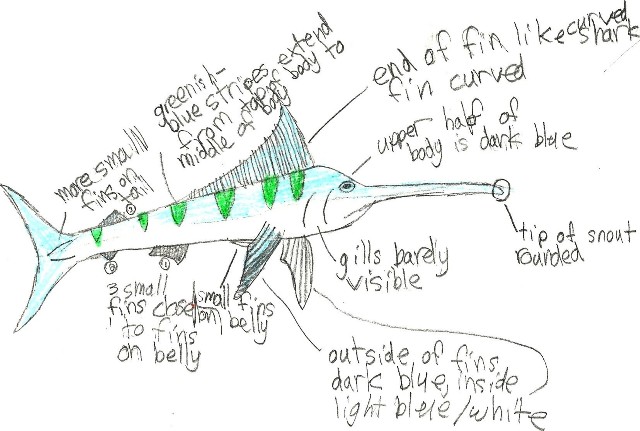 end of fin like curved shark
fin curved
greenish-
blue stripes extend
from top of body to
middle of body
more small
fins on
tail
upper half of
body is dark blue
tip of snout
rounded
gills barely
visible
3 small
fins close
to fins
on belly
small fins
on belly
outside of fins
dark blue, inside
light blue/white